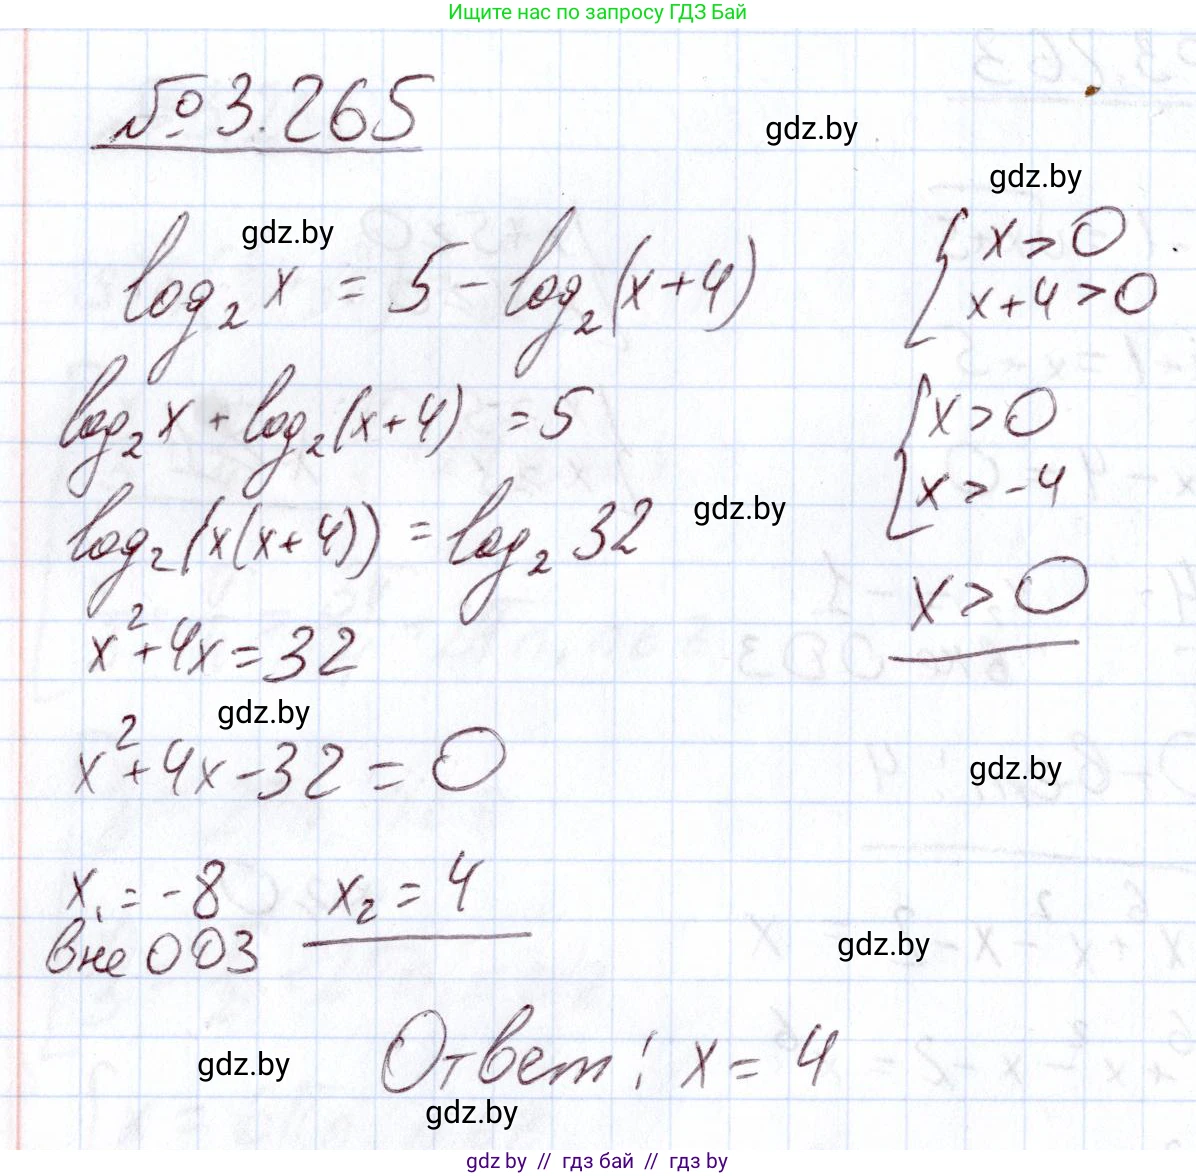 Ищите нас по запросу ГДЗ Бай
№ 3.265
gdz.by
gdz.by
gdz.by
log₂ x = 5 - log₂ (x+4)
{ x > 0
x+4 > 0
log₂ x + log₂ (x+4) = 5
{ x > 0
x > -4
log₂ (x(x+4)) = log₂ 32
gdz.by
x > 0
x² + 4x = 32
gdz.by
x² + 4x - 32 = 0
gdz.by
x₁ = -8 x₂ = 4
вне ОДЗ
gdz.by
Ответ: x = 4
gdz.by
gdz.by
gdz by // гдз бай // гдз by